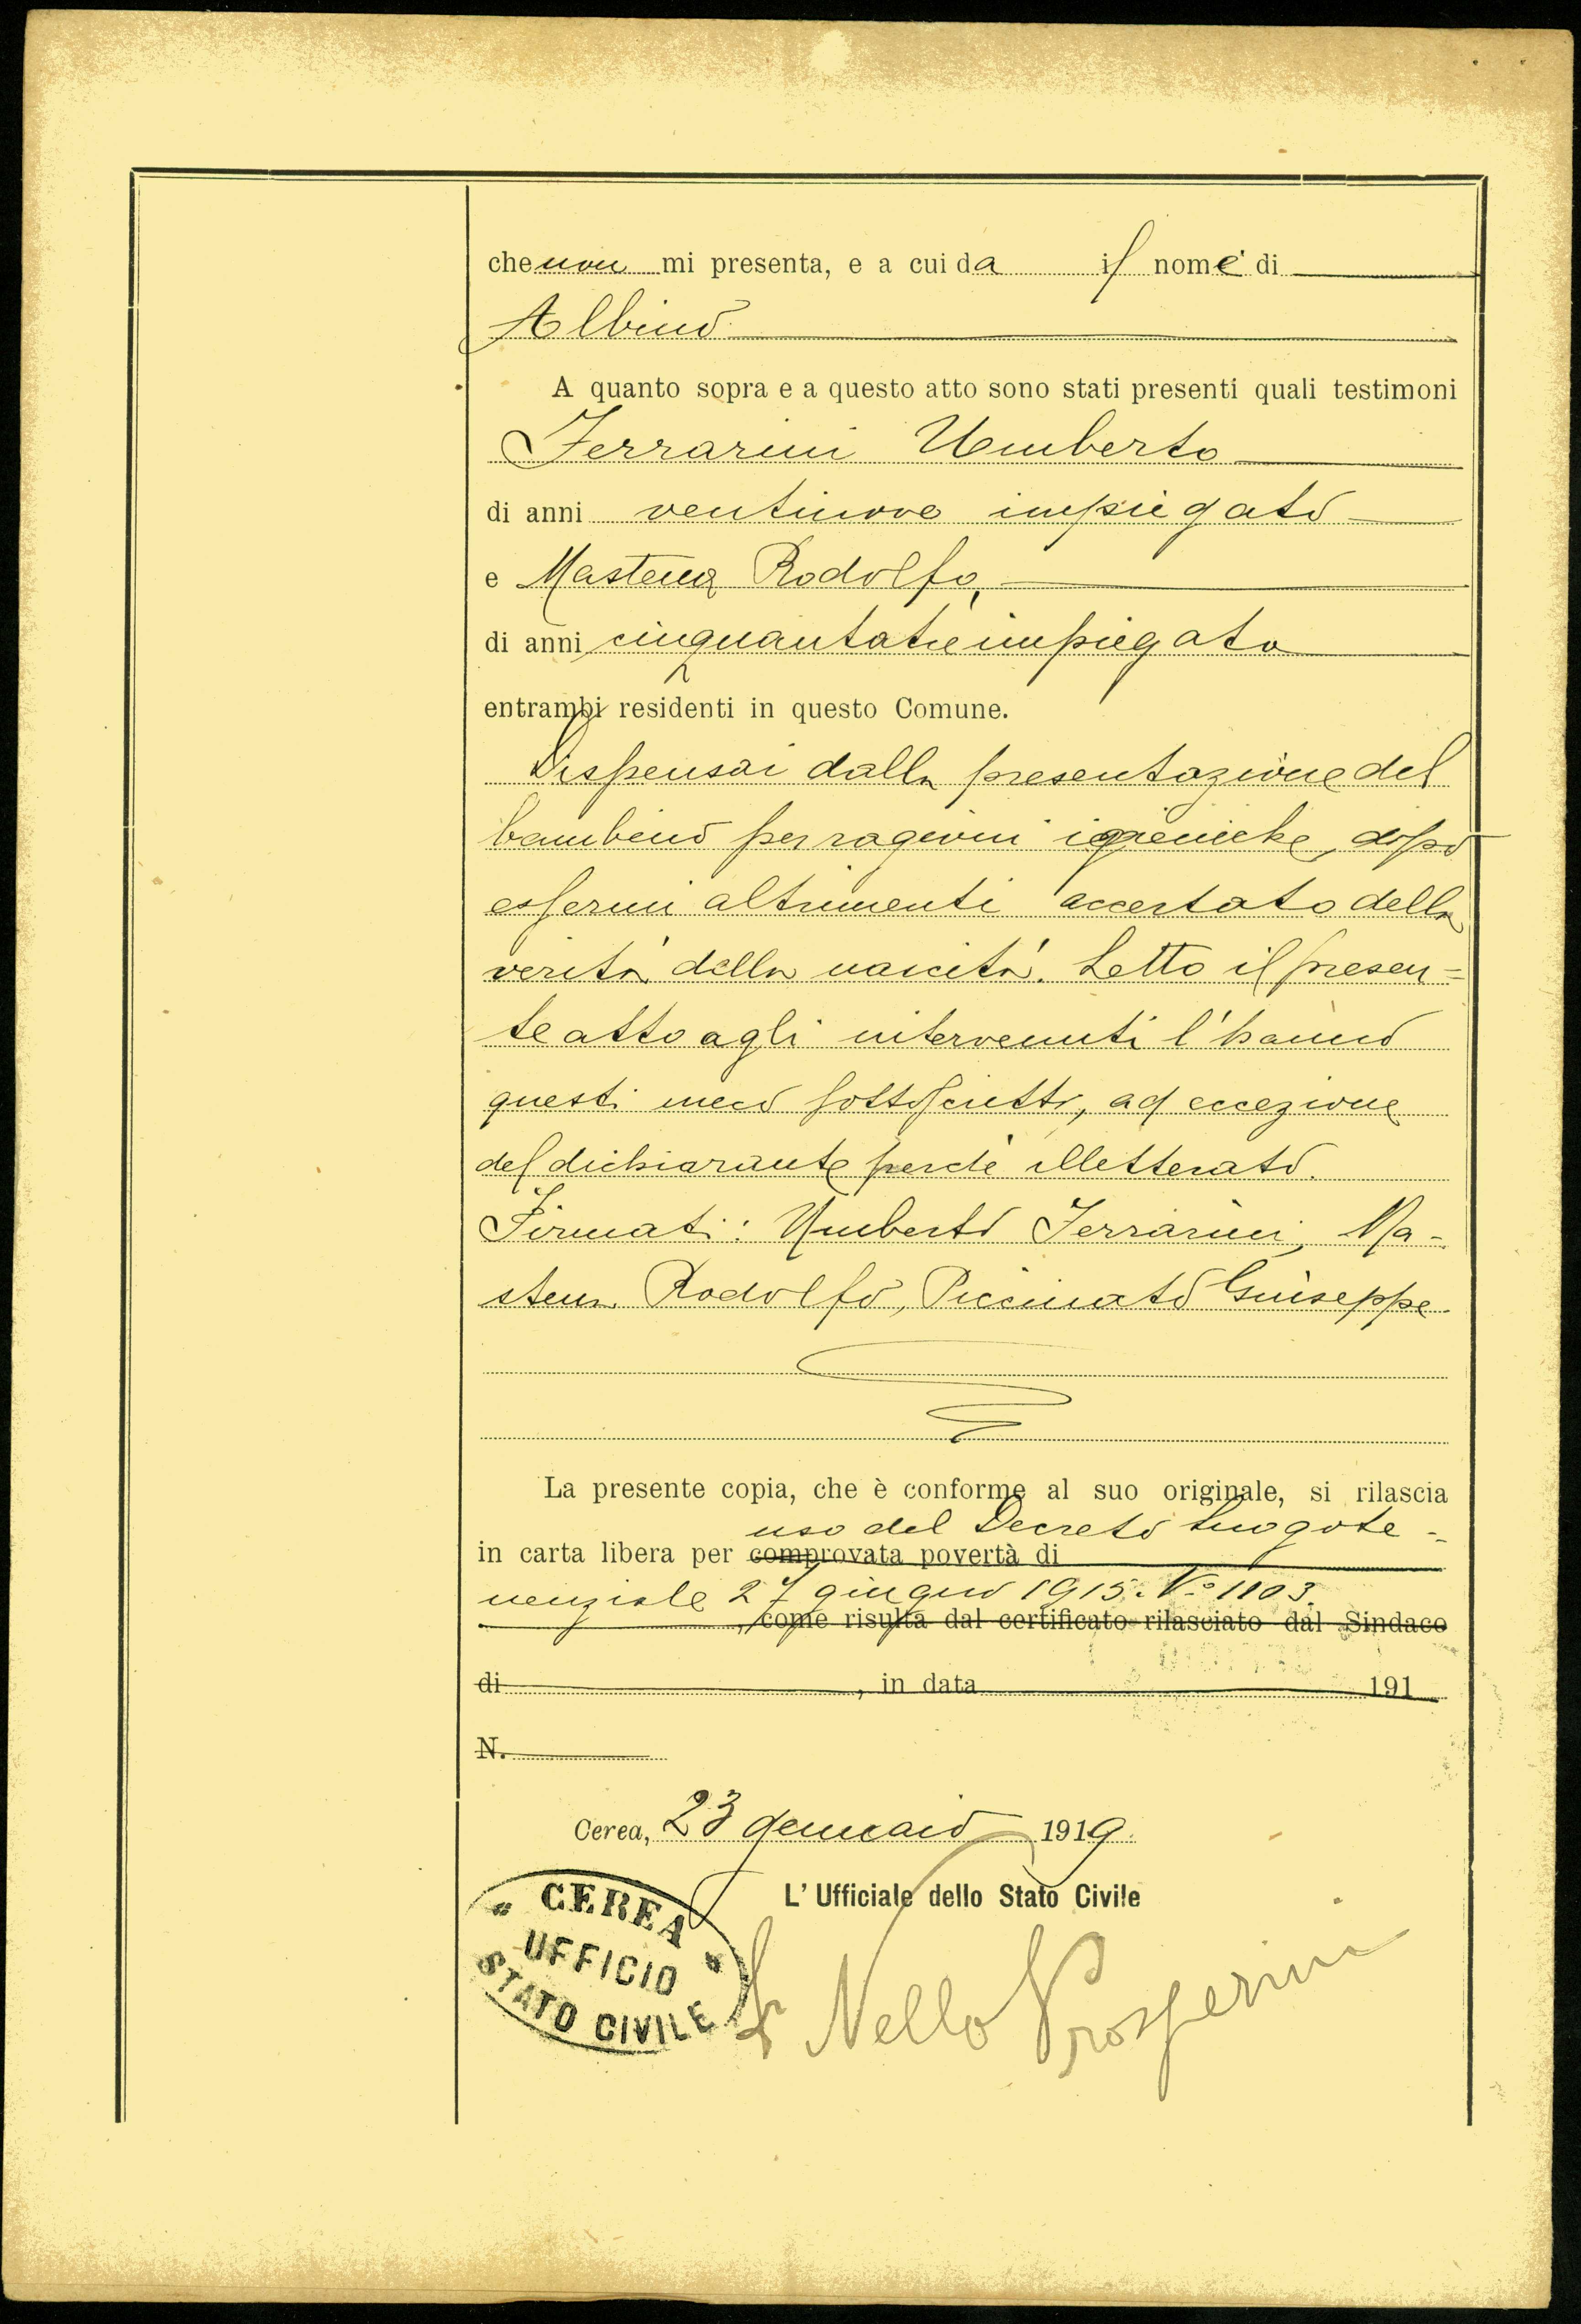 che non mi presenta, e a cui da il nome di
Albino
A quanto sopra e a questo atto sono stati presenti quali testimoni
Ferrarini Umberto
di anni ventinove impiegato
e Mastena Rodolfo,
di anni cinquantatre impiegato
entrambi residenti in questo Comune.
Dispensai dalla presentazione del
bambino per ragioni igieniche, dopo
essermi altrimenti accertato della
verità della nascita. Letto il presen=
te atto agli intervenuti l'hanno
questi meco sottoscritto, ad eccezione
del dichiarante perché illetterato.
Firmati: Umberto Ferrarini, Ma-
stena Rodolfo, Piccinato Giuseppe
La presente copia, che è conforme al suo originale, si rilascia
uso del Decreto Luogote-
in carta libera per comprovata povertà di
nenziale 27 giugno 1915. N° 1103.
, come risulta dal certificato rilasciato dal Sindaco
di , in data 191
N.
Cerea, 23 gennaio 1919.
L' Ufficiale dello Stato Civile
CEREA
UFFICIO
STATO CIVILE
Nello Prosperini